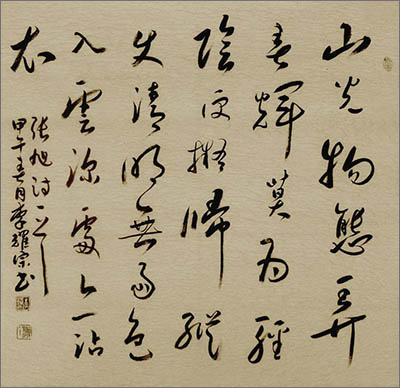 山光物態弄
春輝莫为輕
陰便擬歸縱
使清明無雨色
入雲深處亦沾
衣
張旭詩一首
甲午春月李耀宗书